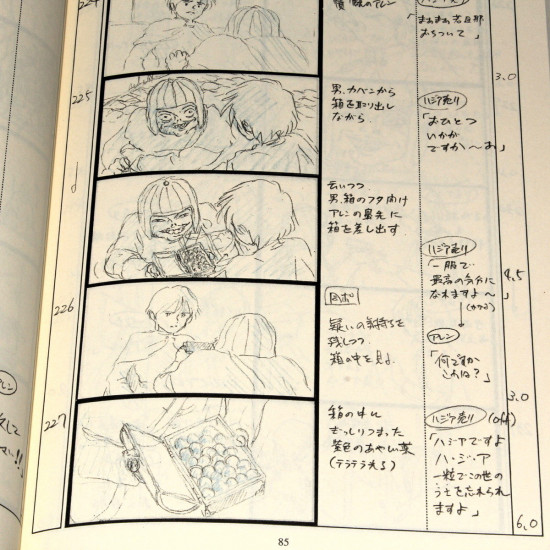 224
憤慨のアレン
「まぁまぁ若旦那
おちついて」
3.0
225
男、カバンから
箱を取り出し
ながら
ハジア売り
「おひとつ
いかが
ですか〜あ」
云いつつ
男、箱のフタ開け
アレンの鼻先に
箱を差し出す
ハジア売り
「一服で
最高の気分に
なれますよ〜」
4.5
226
同ポ
疑いの気持ちを
残しつつ
箱の中を見る
アレン
「何ですか
これは?」
3.0
227
箱の中に
ぎっしりつまった
紫色のあやしい薬
(テラテラ光る)
ハジア売り(off)
「ハジヤですよ
ハ・ジ・ア
一粒でこの世の
うさを忘れられ
ますよ」
6.0
85